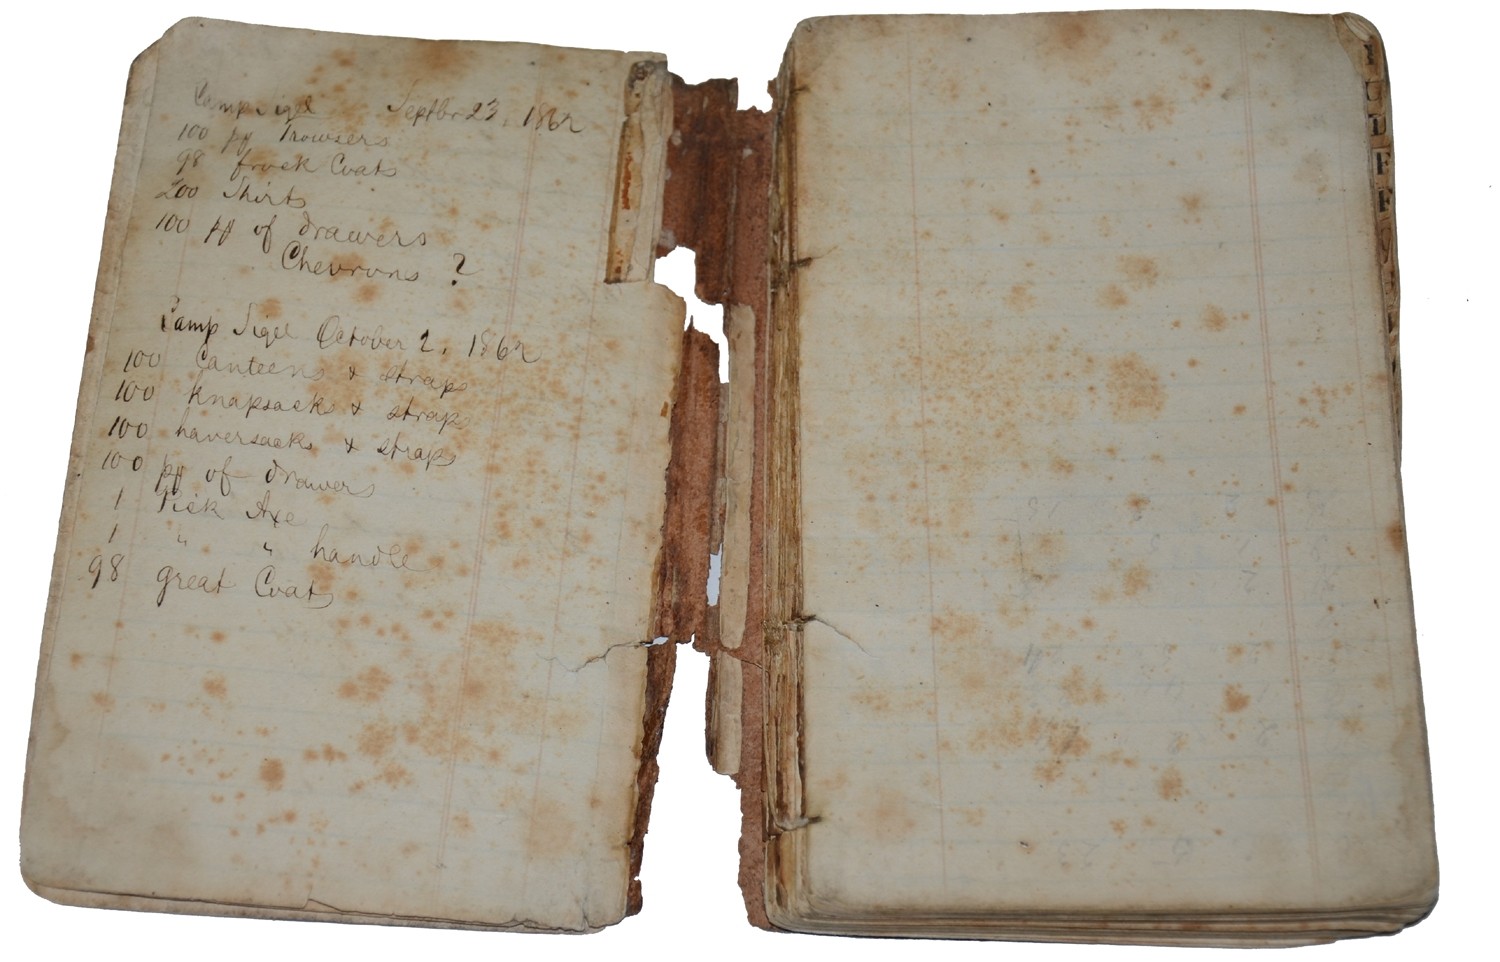 Camp Sigel Septbr 23, 1862
100 pr Trowsers
98 frock Coats
200 Shirts
100 pr of drawers
Chevrons ?
Camp Sigel October 2, 1862
100 Canteens & straps
100 knapsacks & straps
100 haversacks & straps
100 pr of drawers
1 Pick Axe
1 " " handle
98 great Coats
D
E
F